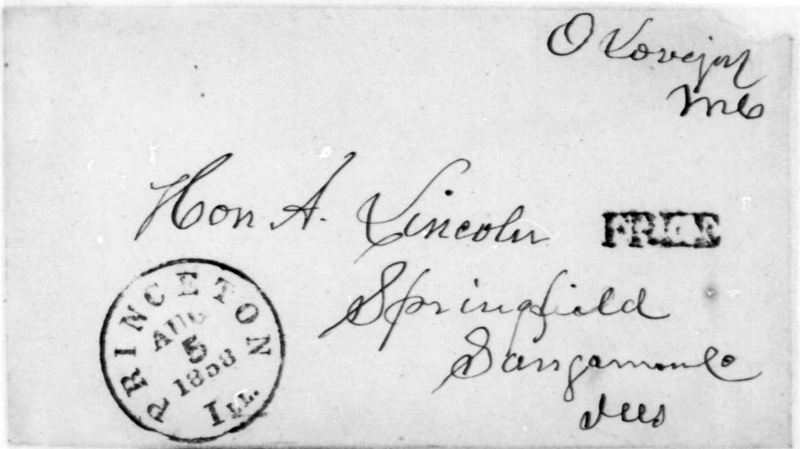 O Lovejoy
M C
Hon A. Lincoln
FREE
Springfield
Sangamon Co
Ills
PRINCETON
AUG
5
1858
ILL.